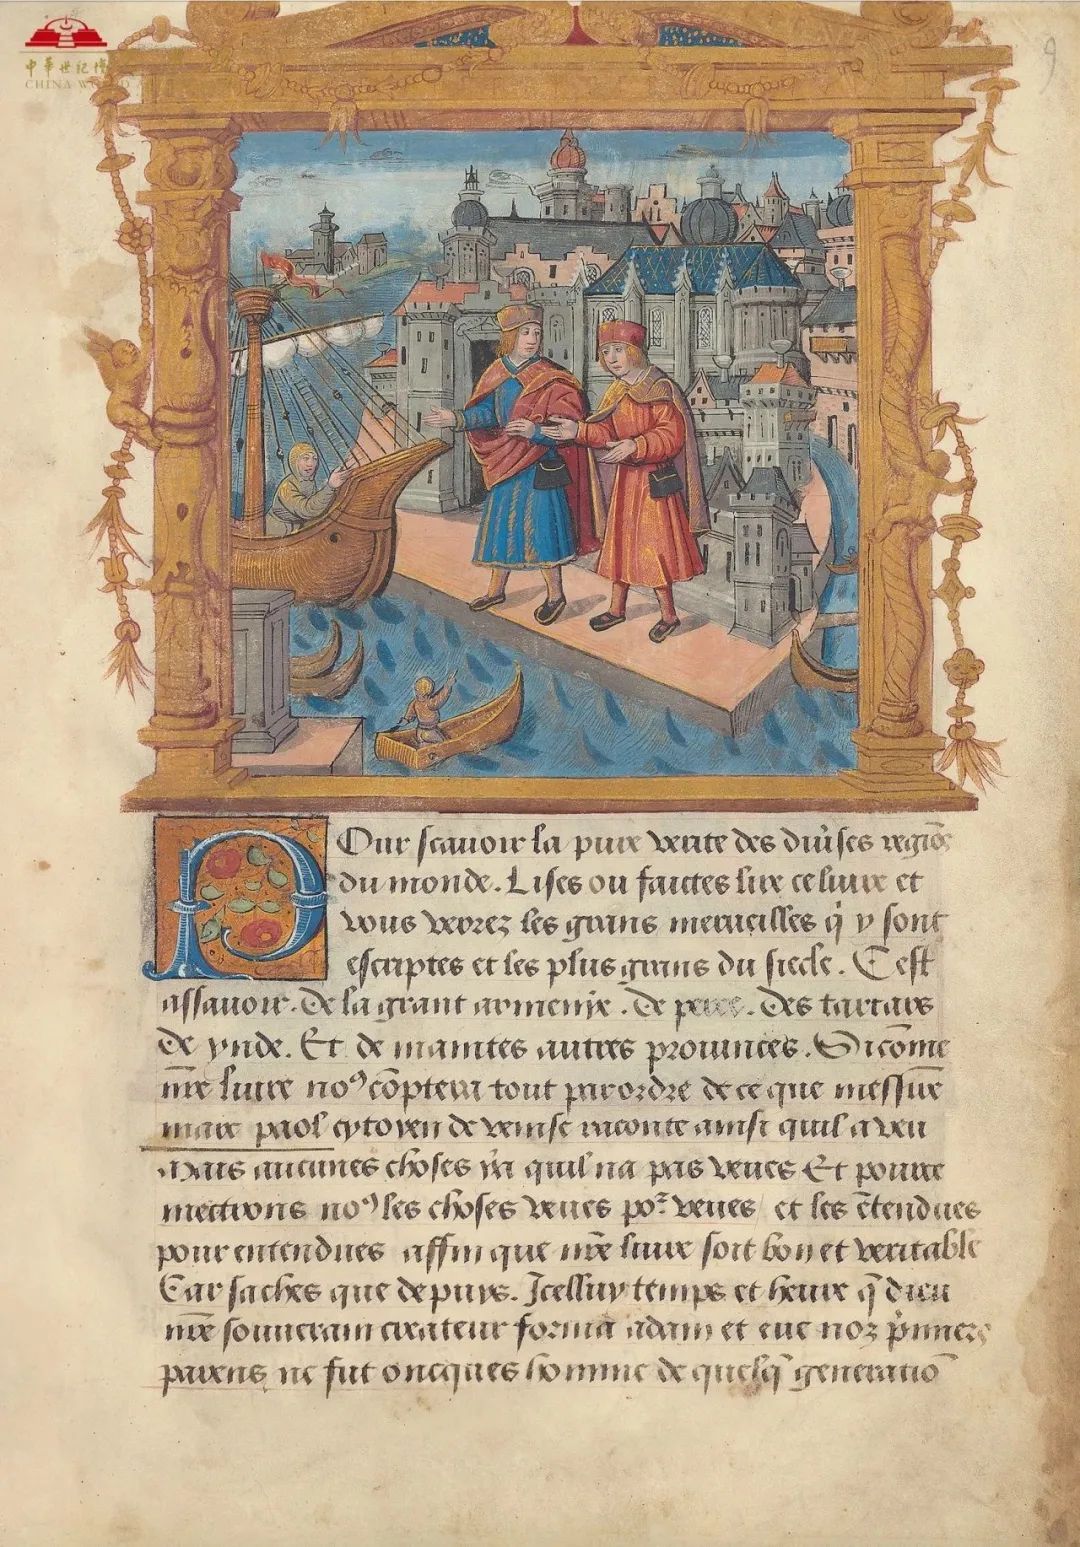 中華世紀
CHINA W
9
Pour scauoir la pure verite des diu̇ses regiōs
du monde. Lises ou faictes lire ce liure et
vous verrez les grans merueilles q̇ y sont
escriptes et les plus grans du siecle. Cest
assauoir. De la grant armenie. de perce. des tartars
De ynde. Et de maintes autres prouinces. Si cōme
nr̄e liure noꝰ cōptera tout par ordre de ce que messire
marc paol cytoyen de venise raconte ainsi quil a veu
Mais aucunes choses ya quil na pas veues Et pource
mectrons noꝰ les choses veues poᵉ veues et les ētendues
pour entendues affin que nr̄e liure soit bon et veritable
Car saches que depuys. Icelluy temps et heure q̄ dieu
nr̄e souuerain createur forma adam et eue noz p̓miers
parens ne fut oncques homme de quelq̄ generatiō